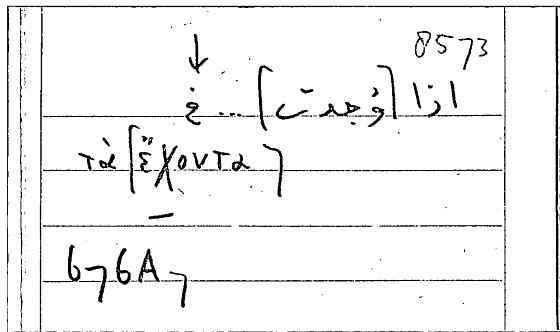 8573
اذا [وُجدت] ... غ
τὰ [ἔχοντα]
676A7